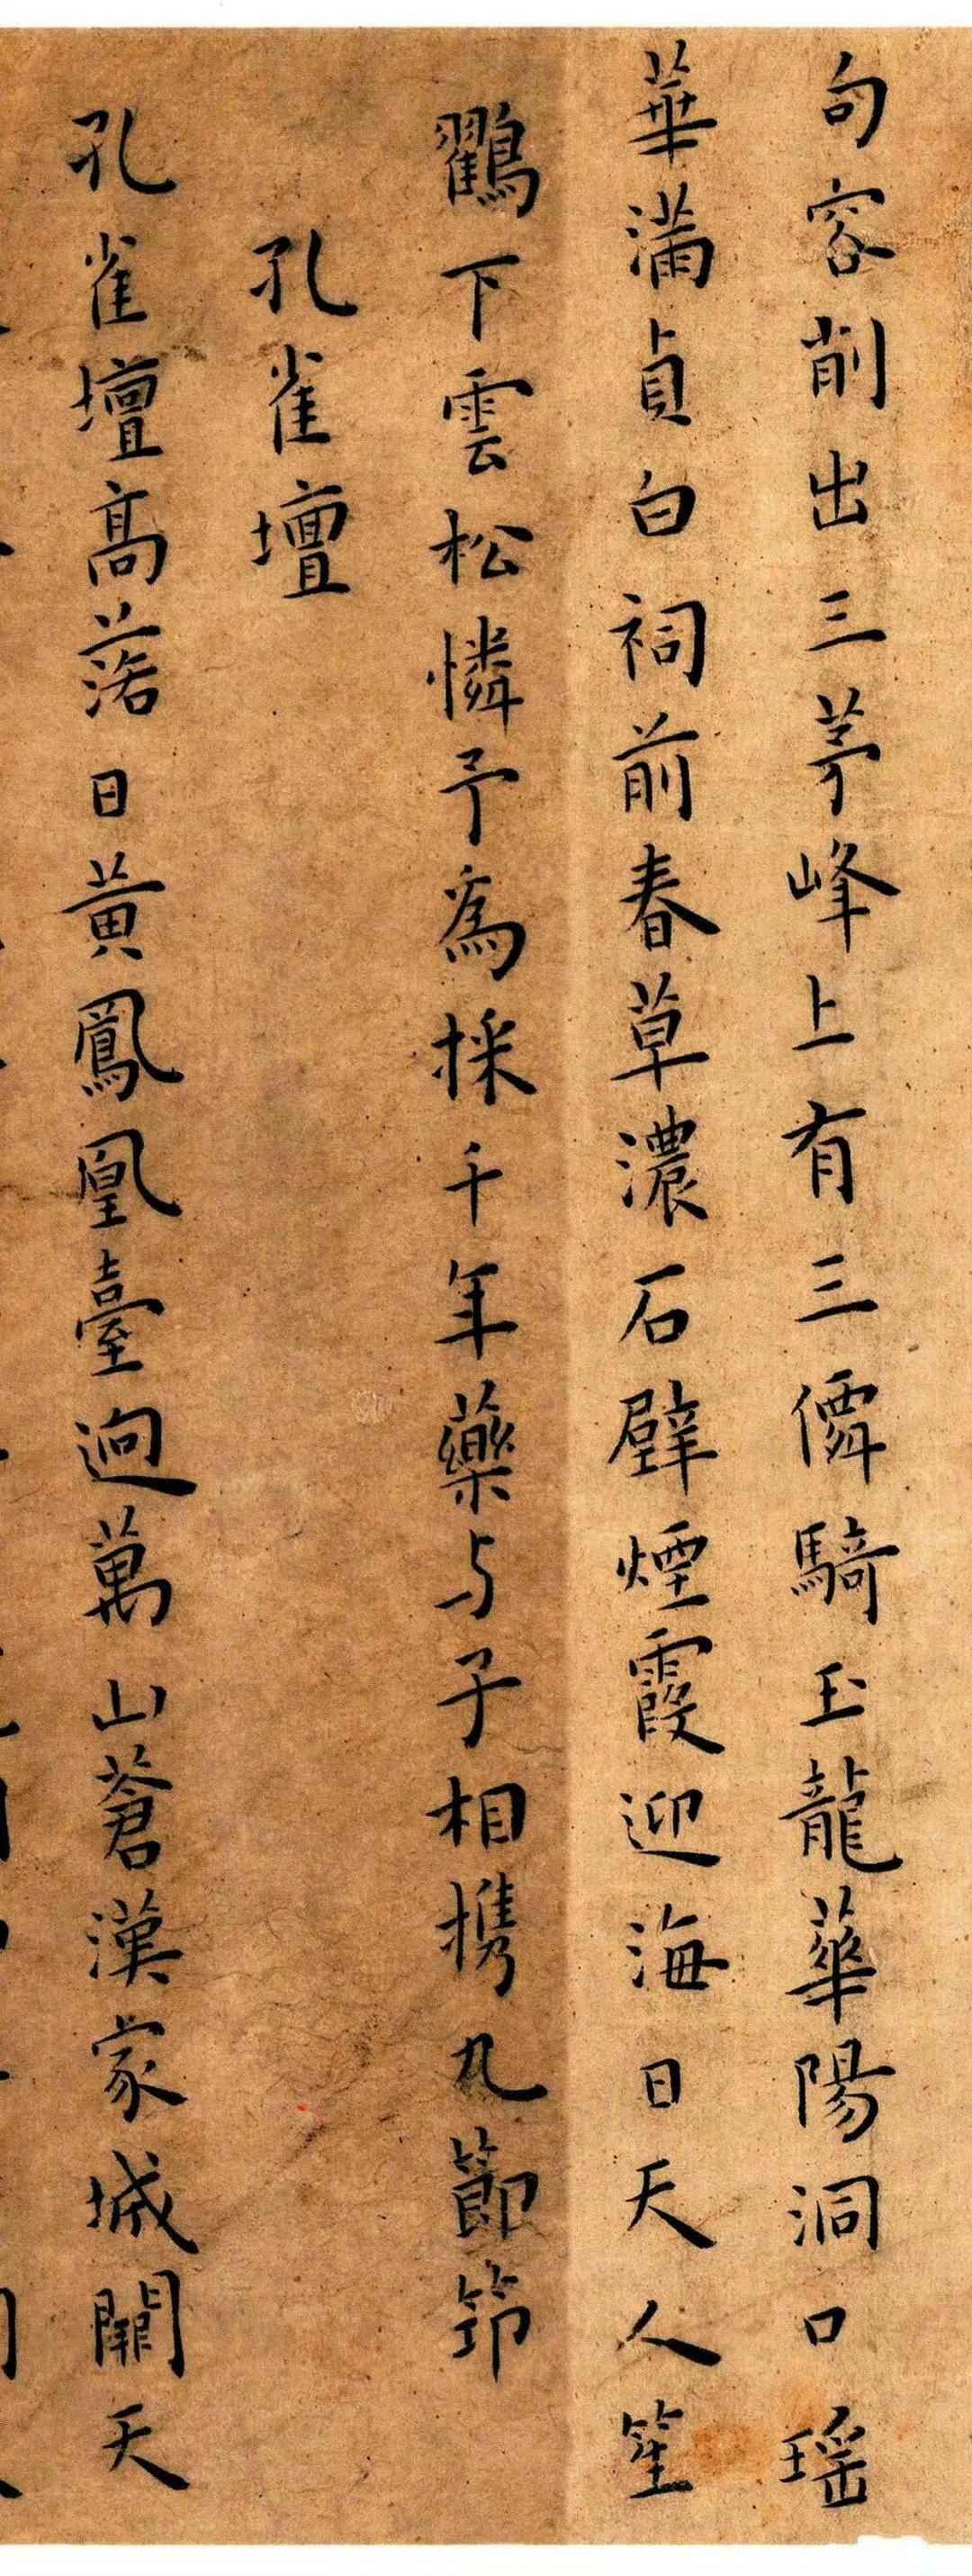 句容削出三茅峰上有三僊騎玉龍華陽洞口瑶
華滿貞白祠前春草濃石壁煙霞迎海日天人笙
鸛下雲松憐予爲採千年藥与子相携九節笻
孔雀壇
孔雀壇高落日黄鳳凰臺迥萬山蒼漢家城闕天